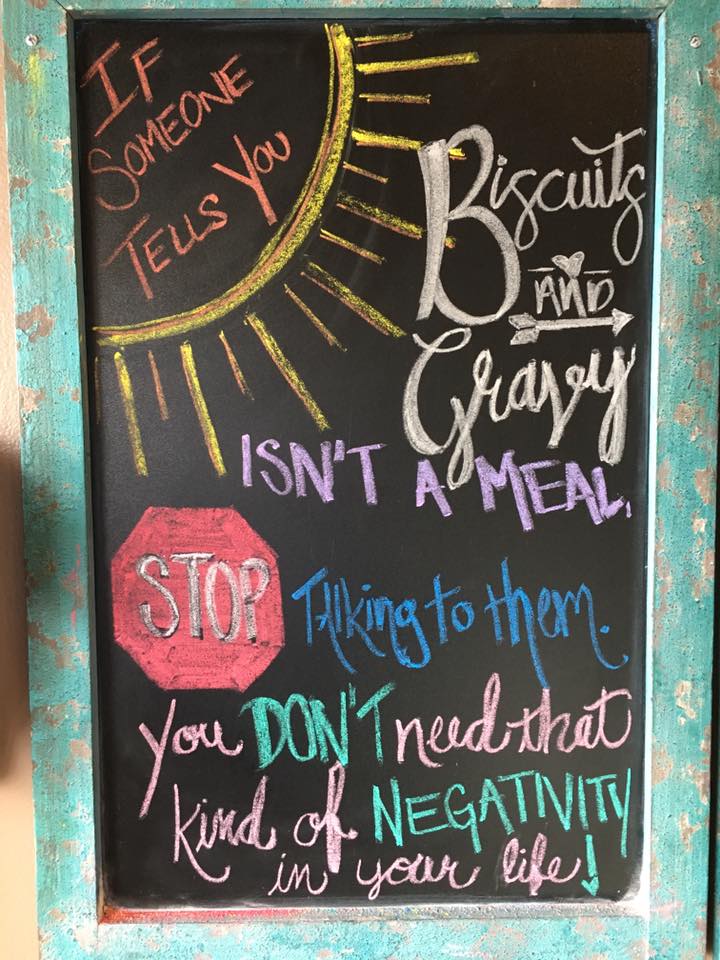 IF
SOMEONE
TELLS YOU
Biscuits
AND
Gravy
ISN'T A MEAL.
STOP Talking to them.
you DON'T need that
kind of NEGATIVITY
in your life!